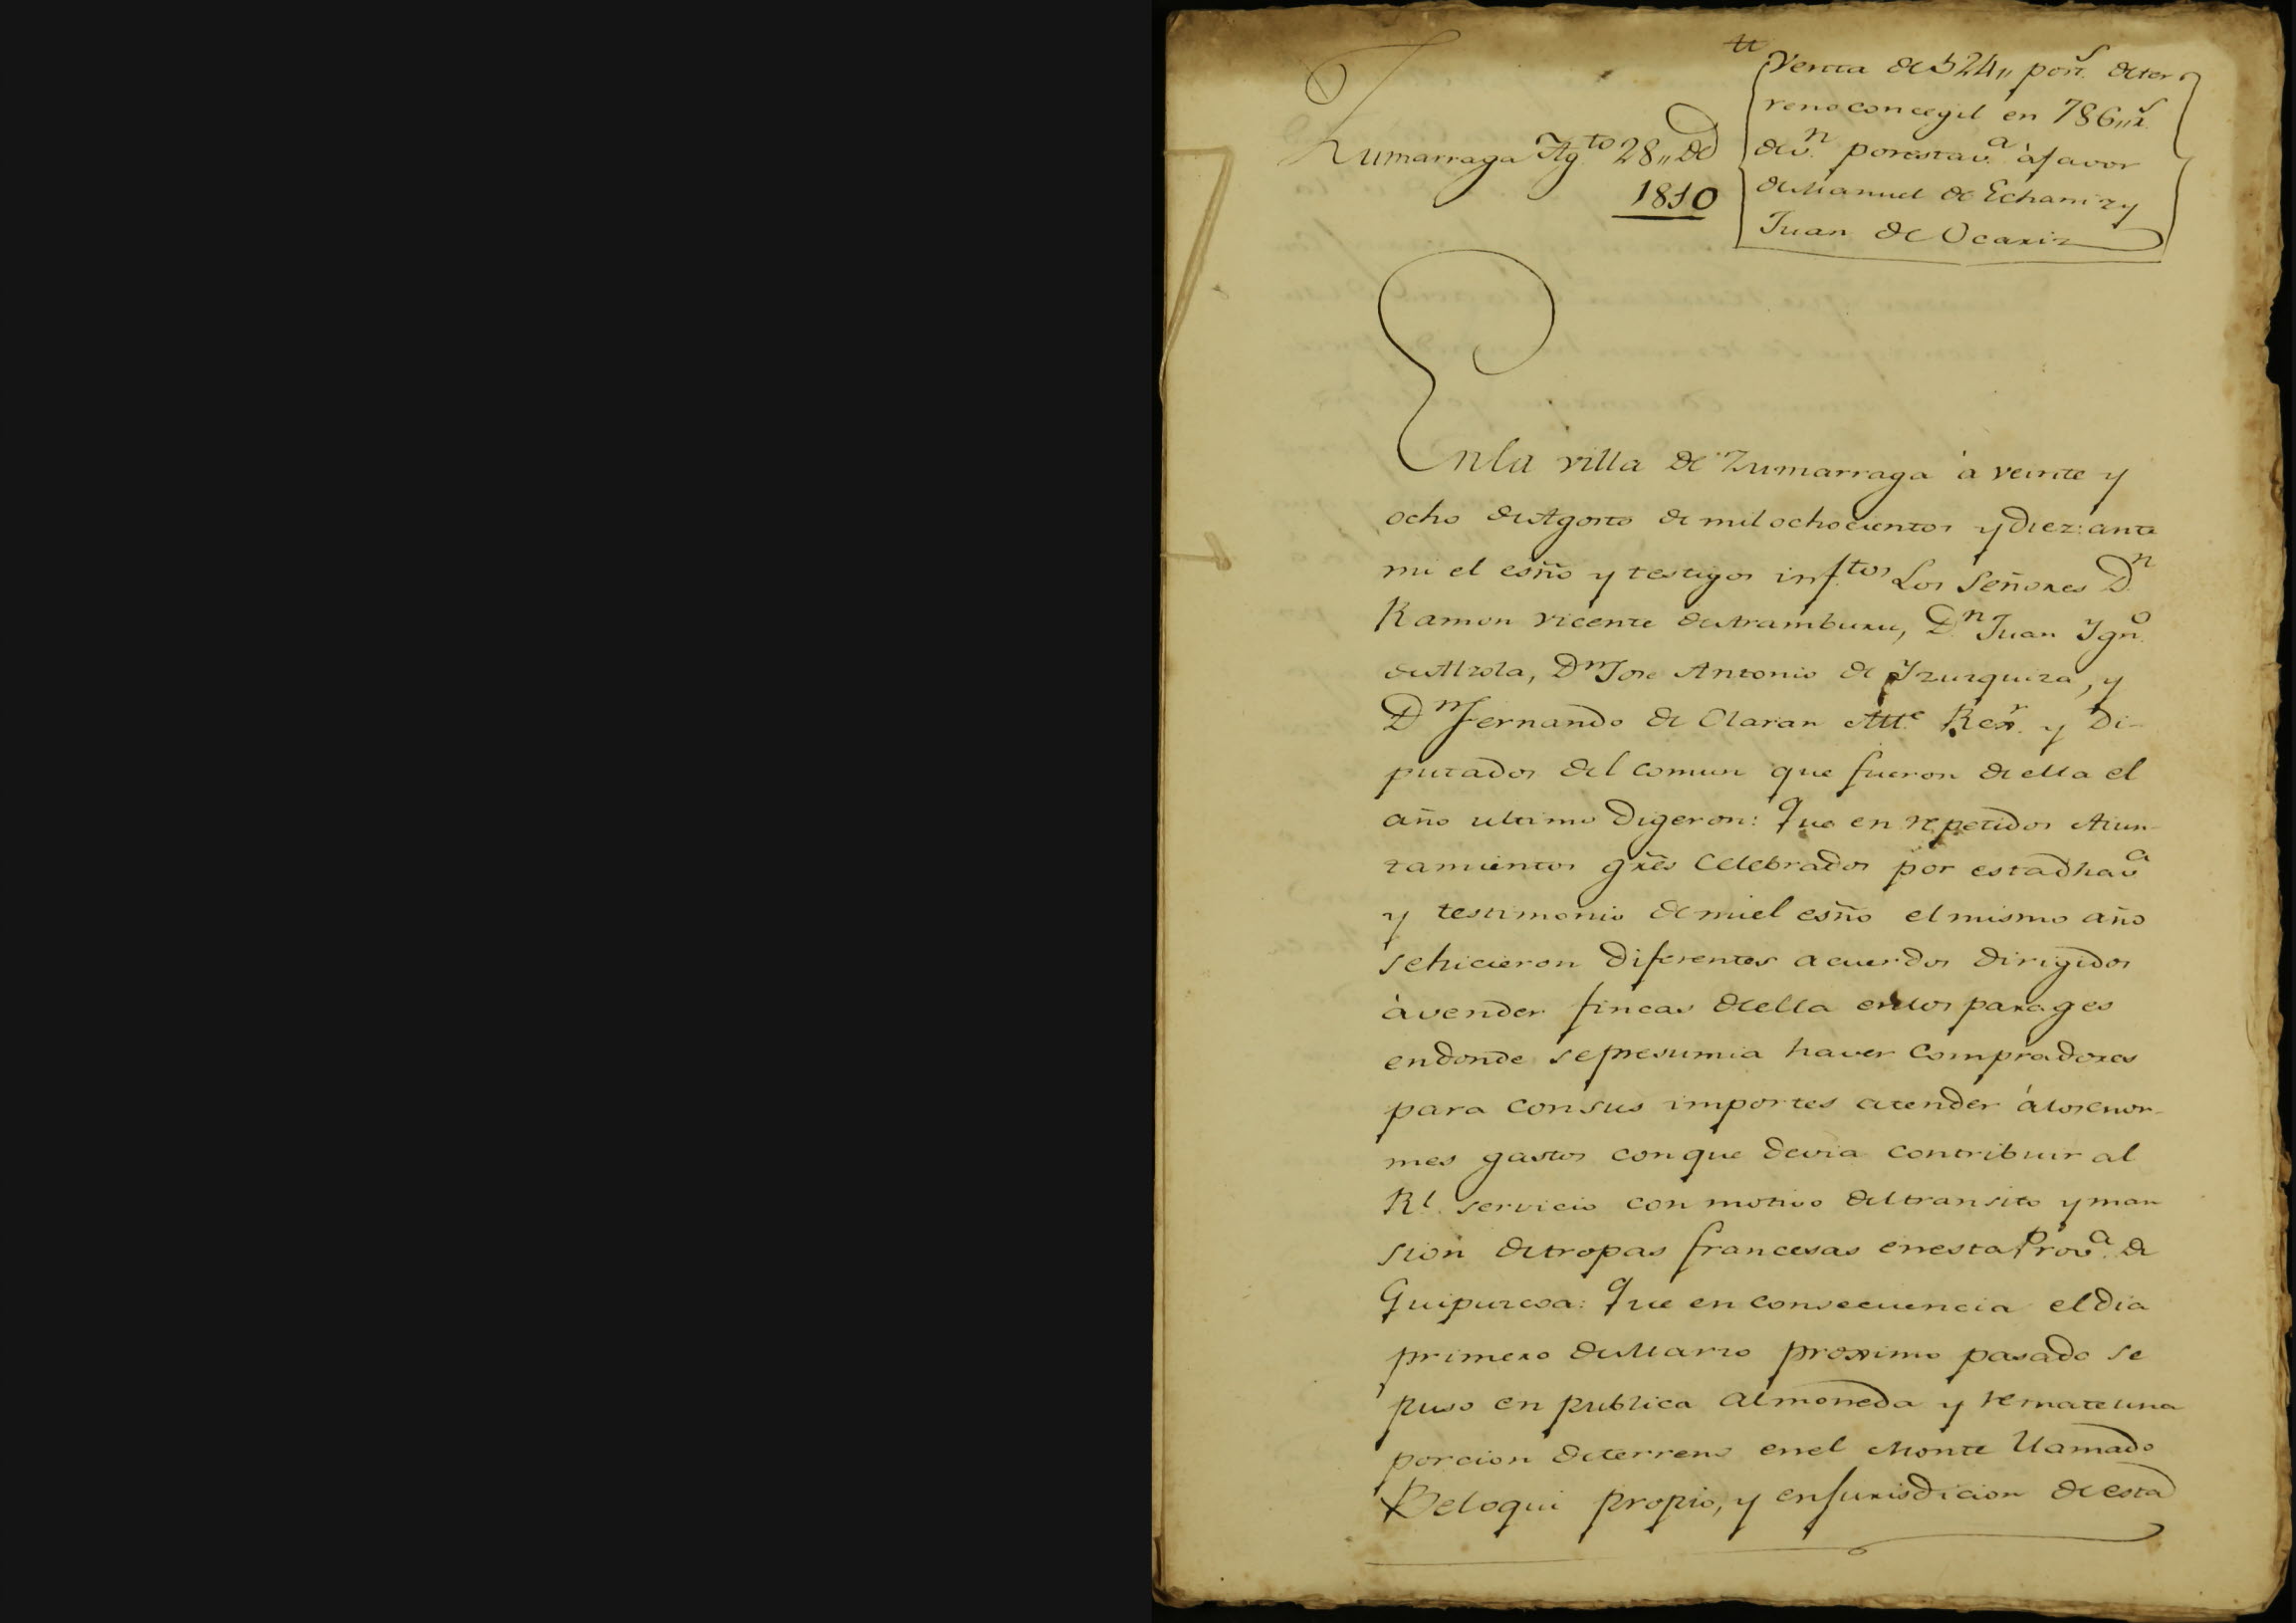 Zumarraga Ag.to 28,, de
1810
Venta de 524,, pors. de ter
reno concegil en 786,, rs.
de v.n por esta v.a à favor
de Manuel de Echaniz y
Juan de Ocariz
En la villa de Zumarraga à veinte y
ocho de Agosto de mil ochocientos y diez: ante
mi el esño y testigos inf.tos Los Señores D.n
Ramon Vicente de Aramburu, D.n Juan Ygn.o
de Alzola, D.n Jose Antonio de Yzuzquiza, y
D.n Fernando de Olaran Alt.e Rex.r y Di-
putados del comun que fueron de ella el
año ultimo Digeron: Que en repetidos Aiun-
tamientos grẽs celebrados por esta dha v.a
y testimonio de mi el esño el mismo año
se hicieron diferentes acuerdos dirigidos
à vender fincas de ella en los parages
en donde se presumia haver compradores
para con sus importes atender à los enor-
mes gastos con que devia contribuir al
Rl. servicio con motivo del transito y man
sion de tropas francesas en esta Prov.a de
Guipuzcoa: Que en consecuencia el dia
primero de Marzo proximo pasado se
puso en publica almoneda y remate una
porcion de terreno en el Monte llamado
Beloqui propio, y en jurisdicion de esta